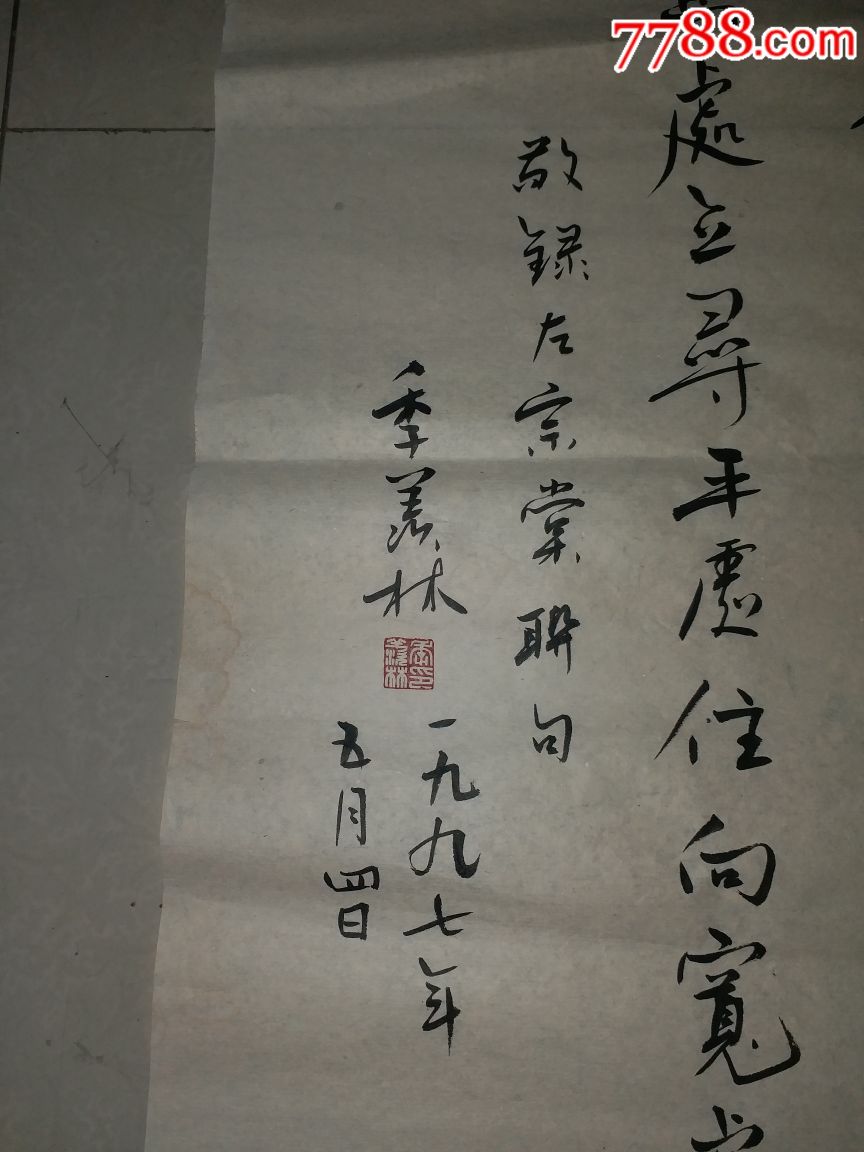 7788.com
處立尋平處住向寬
敬錄左宗棠聯句
季羡林
季羡林印
一九九七年
五月四日